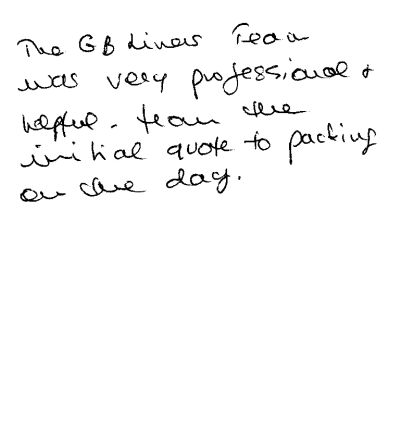 The GB Liners Team
was very professional &
helpful - from the
initial quote to packing
on the day.